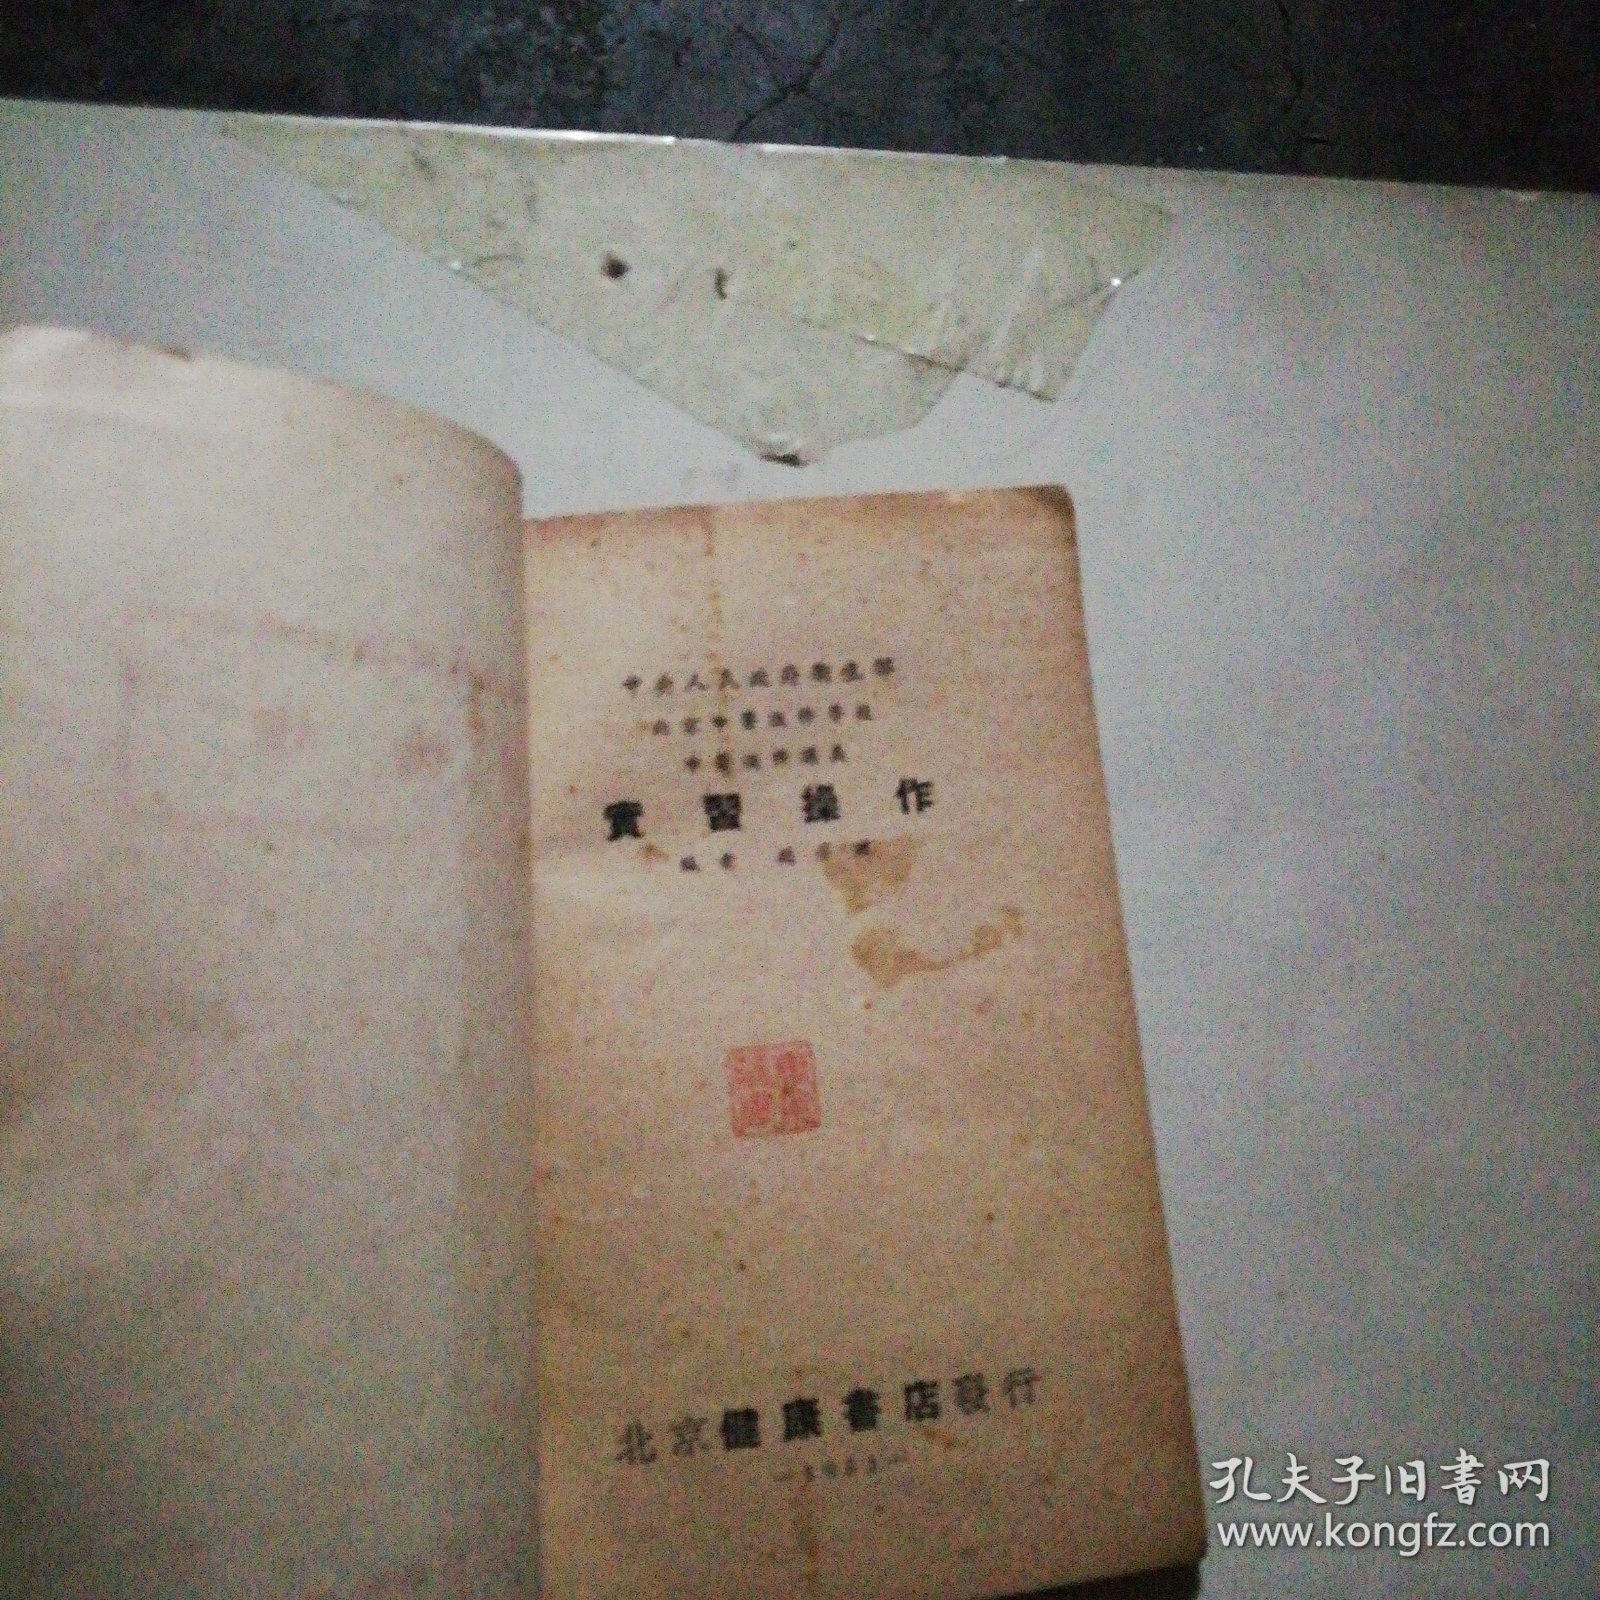 中央人民政府衛生部
北京中醫進修學校
中醫進修講義
實習操作
編者
北京健康書店發行
孔夫子旧书网
www.kongfz.com